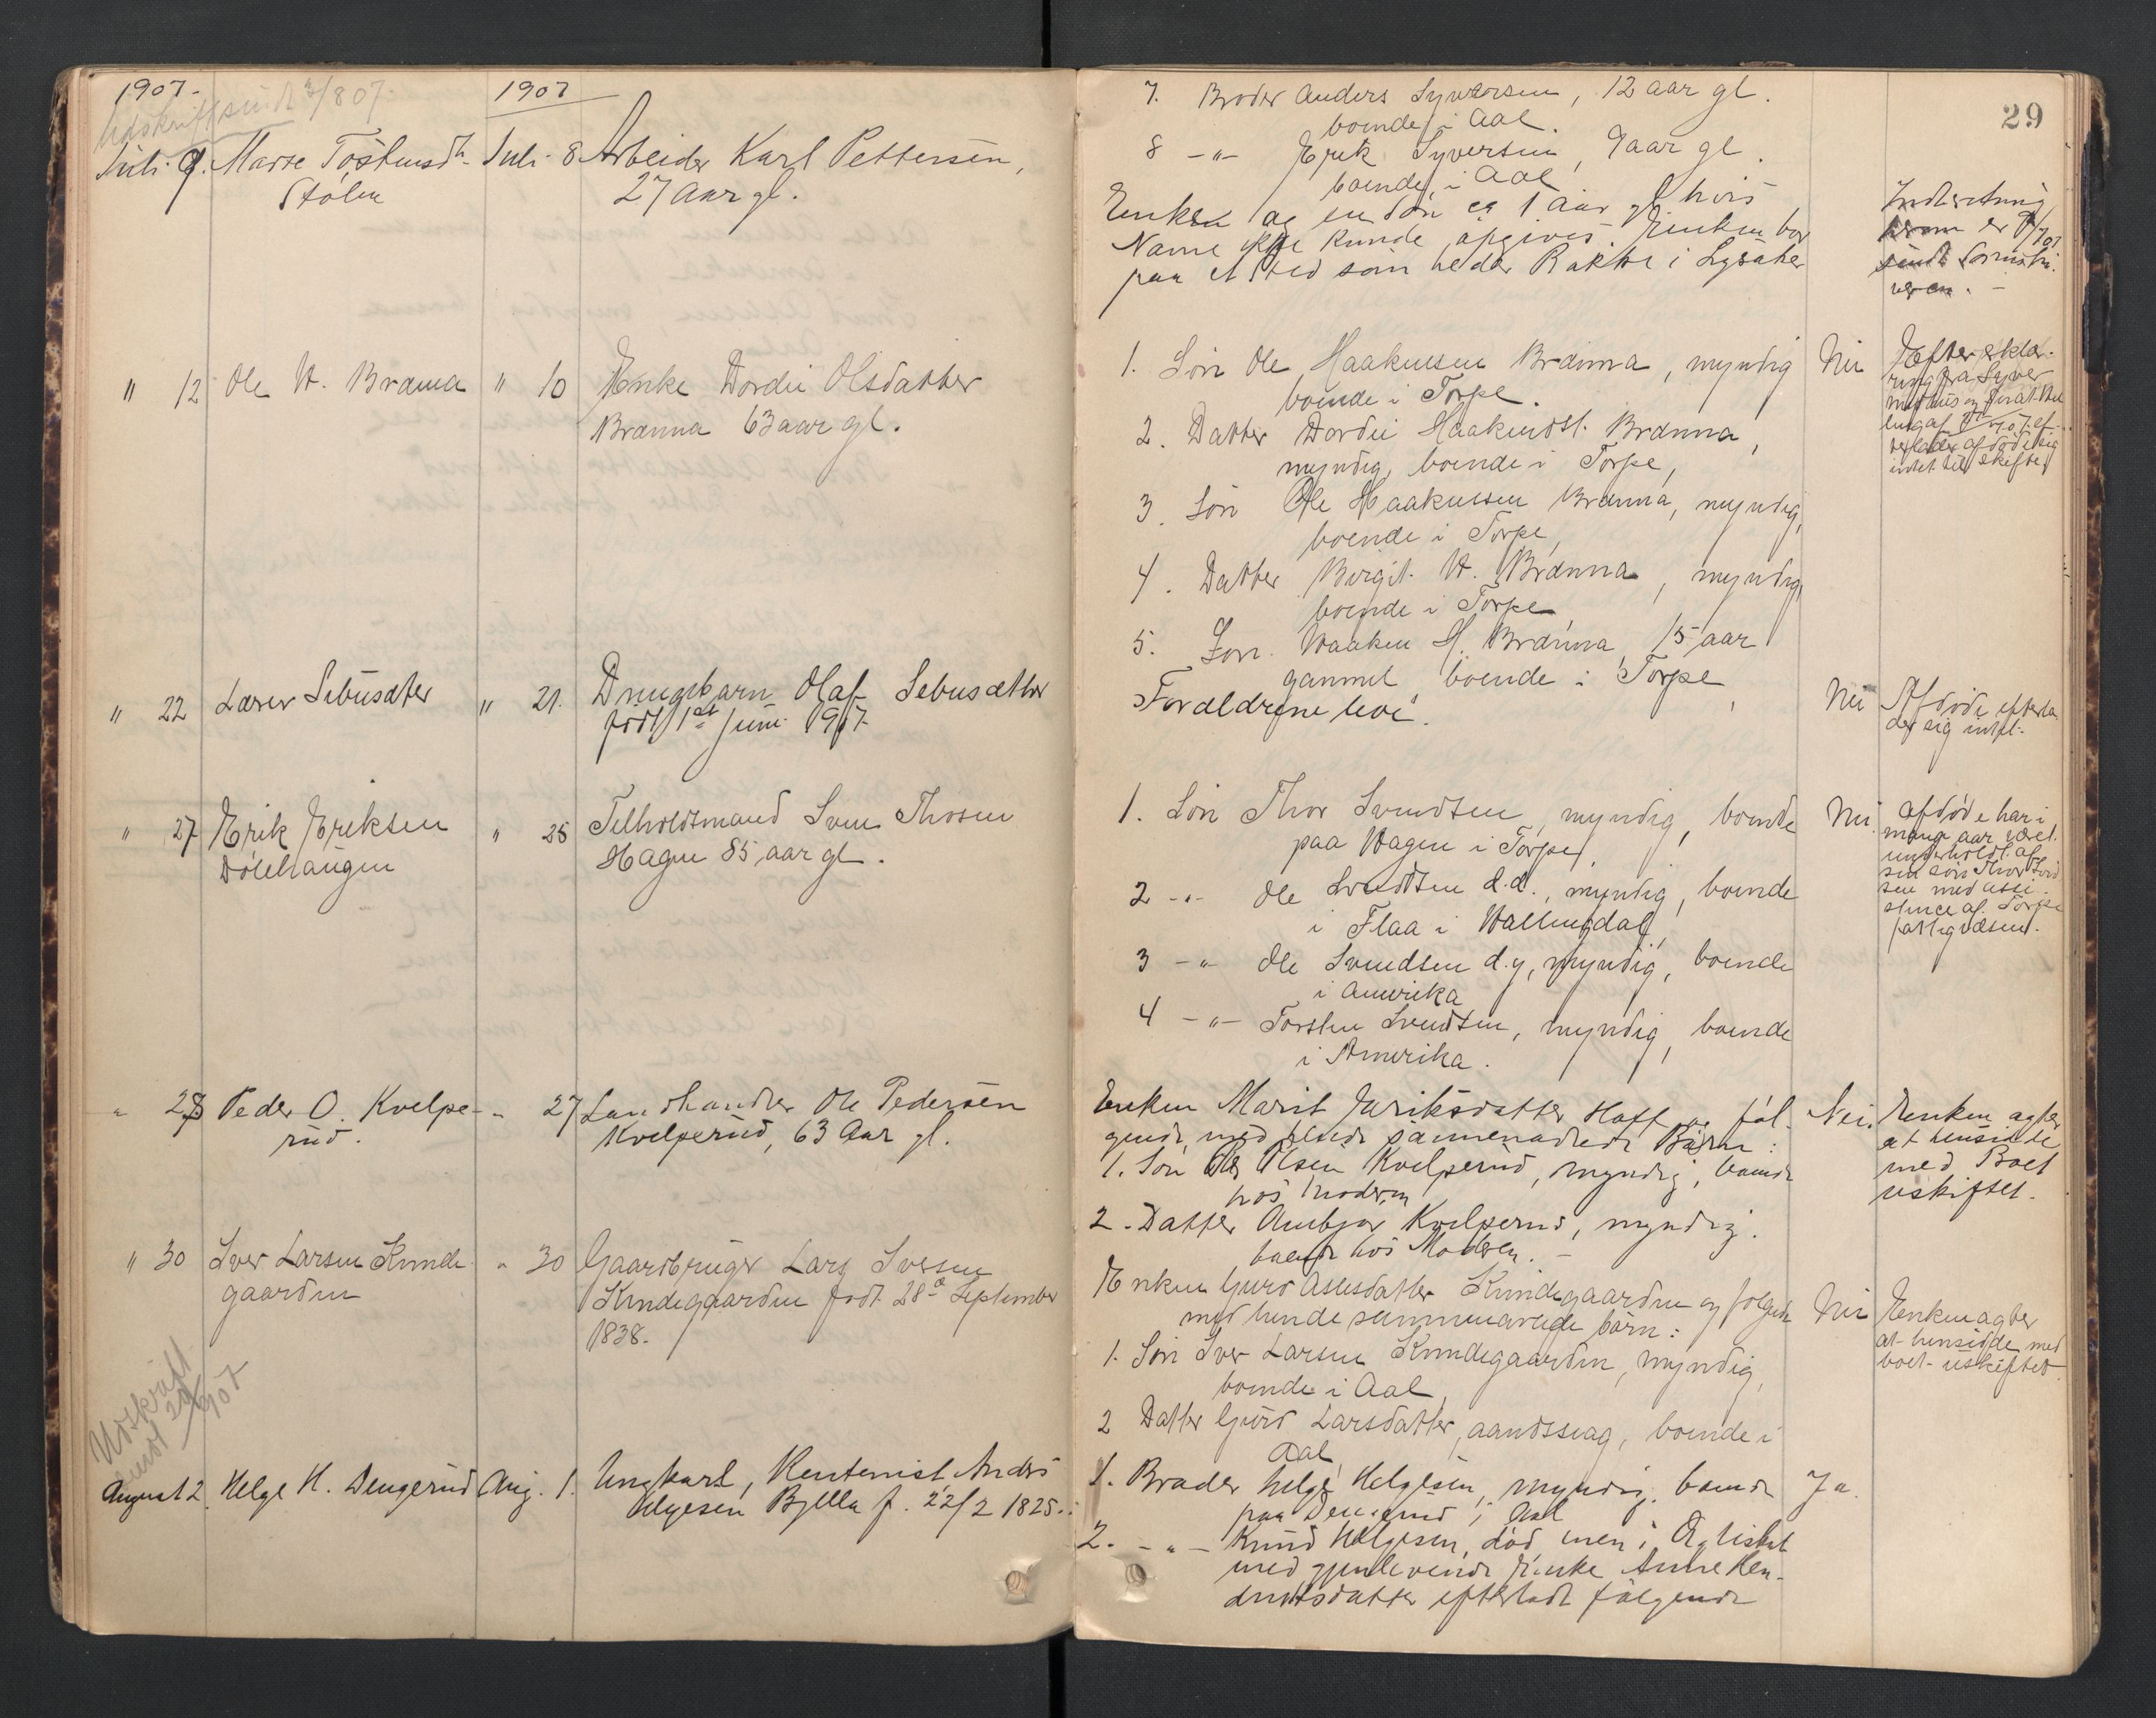 1907. 1907
Udskrift sendt 3/8 07.
Juli 9. Marte Tostensdt. Juli 8 Arbeider Karl Pettersen,
Stølen 27 aar gl.
" 12 Ole H. Brænna " 10 Enke Dordei Olsdatter
Brænna 63 aar gl.
" 22 Lærer Sebusæter " 21. Drengebarn Olaf Sebusæther
født 1st Juni 1907.
" 27 Erik Eriksen " 25 Tilholdsmand Sven Thorsen
Dölehaugen Hagen 85 aar gl.
" 28 Peder O. Kvelpe- " 27 Landhandler Ole Pedersen
rud. Kvelperud, 63 Aar gl.
" 30 Iver Larsen Kunde- " 30 Gaardbruger Lars Iversen
gaarden Kundegaarden født 28de September
1838.
Udskrift
sendt
August 2. Helge H. Dengerud Aug. 1. Ungkarl, Rentenist Anders
Helgesen Bjella f. 22/2 1825.
29
7. Broder Anders Syversen, 12 aar gl.
boende i Aal.
8 -"- Erik Syversen, 9 aar gl.
boende i Aal
Enken og en søn ca 1 aar gl hvis
Navn ikke kunde opgives. Enken bor
paa et Sted som heder Bakke i Lysaker
Indberetning
herom er
sendt
1. Søn Ole Haakensen Brænna, myndig Nei
boende i Torpe.
2. Datter Dordei Haakendt. Brænna,
myndig, boende i Torpe,
3. Søn Ole Haakensen Brænna, myndig,
boende i Torpe,
4. Datter Birgit H. Brænna, myndig,
boende i Torpe
5. Søn Haaken H. Brænna, 15 aar
gammel, boende i Torpe,
Efter erklæ-
ring fra Syver
lader afdøde sig
intet til skifte
Forældrene leve. Nei
Afdøde efterla-
der sig intet.
1. Søn Thor Svendsen, myndig, boende Nei.
paa Hagen i Torpe,
2 -"- Ole Svendsen d.æ., myndig, boende
i Flaa i Hallingdal,
3 -"- Ole Svendsen d.y, myndig, boende
i Amerika
4 -"- Torsten Svendsen, myndig, boende
i Amerika.
Afdøde har i
mange aar været
underholdt af
sin søn Thor Svend
sen med assi-
stence af Torpe
fattigvæsen.
Enken Marit Eriksdatter Hoff og føl- Nei.
gende med hende sammenavlede Børn:
1. Søn Ole Olsen Kvelperud, myndig, boende
hos Moderen
2. Datter Ambjør Kvelperud, myndig.
boende hos Moderen. -
Enken agter
at hensidde
med Boet
uskiftet.
Enken Guro Asledatter Kundegaarden og følgende Nei
med hende sammenavlede børn:
1. Søn Iver Larsen Kundegaarden, myndig,
boende i Aal,
2 Datter Guro Larsdatter, aandssvag, boende i
Aal
Enken agter
at hensidde med
boet uskiftet.
1. Broder Helge Helgesen, myndig, boende Ja.
paa Dengerud i Aal
2. -"- Knud Helgesen, død, men i Ægteskab
med gjenlevende Enke Anne Hen-
driksdatter efterladt følgende